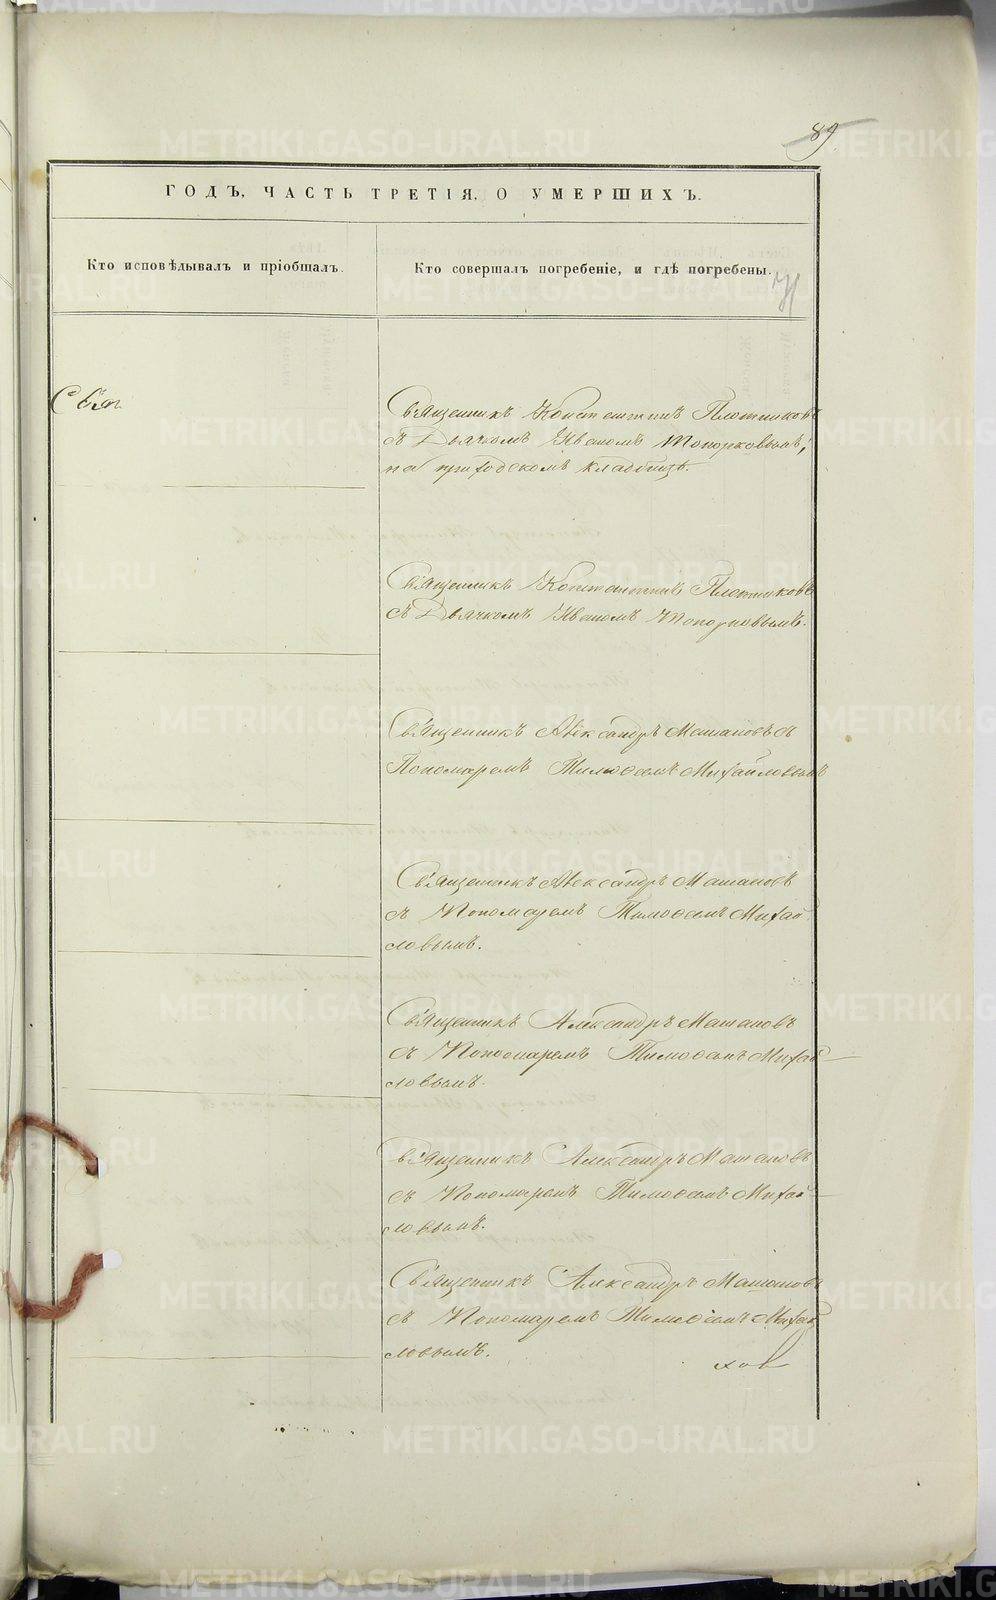 89
ГОДЪ, ЧАСТЬ ТРЕТІЯ, О УМЕРШИХЪ.
Кто исповѣдывалъ и пріобщалъ.
Кто совершалъ погребеніе, и гдѣ погребены.
Священникъ Константинъ Плотниковъ
съ Дьячкомъ Иваномъ Топорковымъ,
на приходскомъ кладбищѣ.
Священникъ Константинъ Плотниковъ
съ Дьячкомъ Иваномъ Топорковымъ.
Священникъ Александръ Матановъ съ
Пономаремъ Тимоѳеемъ Михайловымъ
Священникъ Александръ Матановъ
съ Пономаремъ Тимоѳеемъ Михай
ловымъ.
Священникъ Александръ Матановъ
съ Пономаремъ Тимоѳеемъ Михай
ловымъ.
Священникъ Александръ Матановъ
съ Пономаремъ Тимоѳеемъ Михай
ловымъ.
Священникъ Александръ Матановъ
съ Пономаремъ Тимоѳеемъ Михай
ловымъ.
METRIKI.GASO-URAL.RU